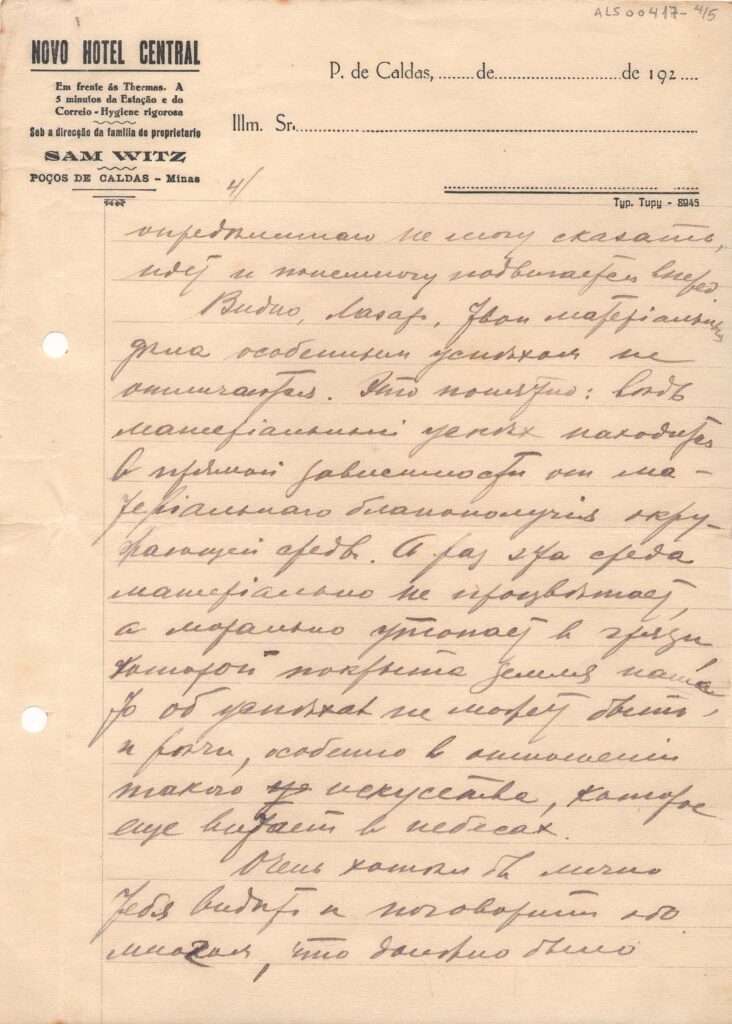 ALS 00417-4/5
NOVO HOTEL CENTRAL
Em frente ás Thermas. A
5 minutos da Estação e do
Correio - Hygiene rigorosa
Sob a direcção da familia do proprietario
SAM WITZ
POÇOS DE CALDAS - Minas
P. de Caldas, ........ de .............................. de 192 ....
Illm. Sr.
Typ. Tupy - 8945
4/
определеннаго не могу сказать,
идет и понемногу подвигается вперед
Видно, Лазарь, Твои матеріальныя
дела особенным успѣхом не
отличаются. Это понятно: вѣдь
матеріальный успѣх находится
в прямой зависимости от ма-
теріальнаго благополучія окру-
жающей среды. А раз эта среда
матеріально не процвѣтает,
а морально утопает в грязи
которой покрыта земля наша
то об успѣхах не может быть,
и рѣчи, особенно в отношеніи
такого искусства, которое
еще витает в небесах.
Очень хотѣл бы лично
Тебя видѣть и поговорить обо
многом, что должно было